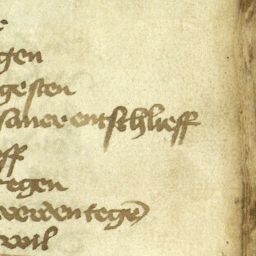 gen
gesten
samer entschlieff
eff
regen
werden tege
wil